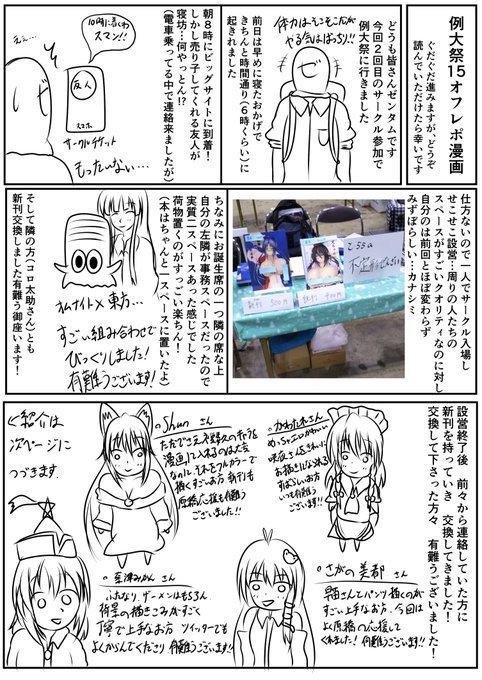 例大祭15オフレポ漫画
ぐだぐだ進みますが、どうぞ
読んでいただけたら幸いです
どうも皆さんゼンタムです
今回2回目のサークル参加で
例大祭に行きました
体力はそこそこだが
やる気はばっちり!!
前日は早めに寝たおかげで
きちんと時間通り(6時くらい)に
起きれました
10時に着くわ
スマン!!
友人
スマホ
ええ…
サークルチケット
もったいない…
朝8時にビッグサイトに到着!
しかし売り子してくれる友人が
寝坊…何やっとん!?
(電車乗ってる中で連絡来ましたが)
仕方ないので一人でサークル入場し
せこせこ設営…周りの人たちの
スペースがすごいクオリティなのに対し
自分のは前回とほぼ変わらず
みずぼらしい…カナシミ
新刊 500円
ちなみにお誕生席の一つ隣の席な上
自分の左隣が事務スペースだったので
実質二スペースあった感じでした
荷物置くのがすっごい楽ちん!
(本はちゃんと一スペースに置いたよ)
オムナイト×東方…
すごい組み合わせで
びっくりしました!
有難うございます!
そして隣の方(コロ助さん)とも
新刊交換しました有難う御座います!
設営終了後 前々から連絡していた方に
新刊を持っていき 交換してきました!
交換して下さった方々 有難うございました!
。かわたれさん
めっちゃエロかわいい
咲夜さんをきれいに
お描きになられる
すばらしいお方
いつも有難う
ございます!!
。Shunさん
ただでさえ不特定多数のキャラを
漫画に入れるのは大変
なのに、それをフルカラーで
描くすごいお方 新刊も
原稿応援も有難う
ございました!!
くわ紹介は
次ページに
つづきます
。さがの美都 さん
早苗さんとパンツ描くのが
すごい上手なお方。今回は
よく原稿の応援して
くれました! 有難うございます!
。豆津みかん さん
ふたなり、ザーメンはもちろん
背景の描きこみがすごく
丁寧で上手なお方 ツイッターでも
よくからんでくださり 有難うございます!!